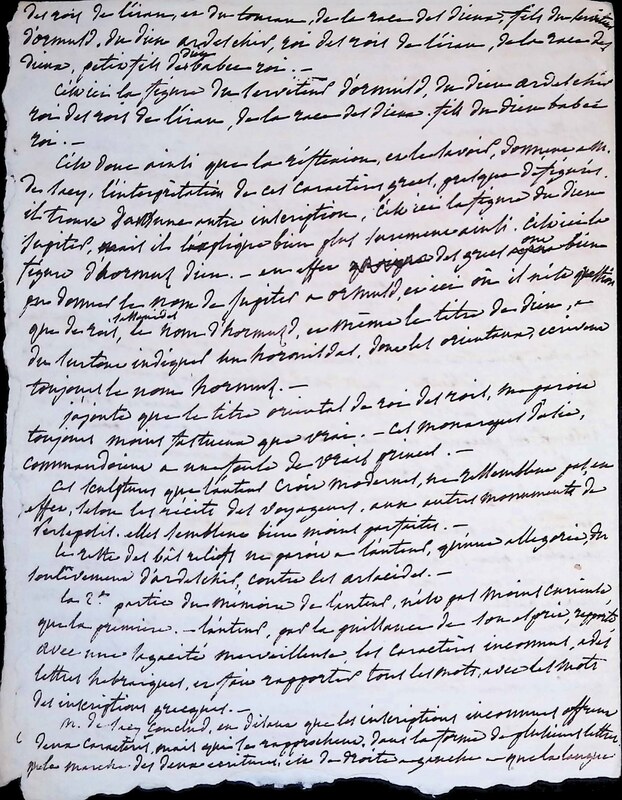 des rois de l'iran, et du touran, de la race des dieux, fils du serviteur
d'ormusd, du dieu ardeschir, roi des rois de l'iran, de la race des
dieux, petit fils du dieu babec roi. —
C'est ici la figure du serviteur d'ormusd, du dieu ardeschir
roi des rois de l'iran, de la race des dieux. fils du dieu babec
roi. —
C'est donc ainsi que la réflexion, et le savoir, donnent a M.
de Sacy, l'interprétation de ces caractères grecs, presque défigurés.
il trouve dans une autre inscription, C'est ici la figure du dieu
Jupiter, mais il l'explique bien plus surement ainsi. C'est ici la
figure d'hormusd dieu. — en effet des grecs ont bien
pu donner le nom de Jupiter a ormusd, et ici où il n'est question
que de rois sassanides, le nom d'hormusd, et même le titre de dieu, a
du surtout indiquer un hormisdas, dont les orientaux, écrivent
toujours le nom hormuz. —
j'ajoute que le titre oriental de roi des rois, me paroit
toujours moins fastueux que vrai. — Ces monarques d'asie,
commandoient a une foule de vrais princes. —
Ces sculptures que l'auteur croit modernes, ne ressemblent pas, en
effet, selon les récits des voyageurs, aux autres monuments de
Persepolis. elles semblent bien moins parfaites. —
le reste des bas reliefs ne paroit a l'auteur, qu'une allégorie, du
soulèvement d'ardeschir, contre les arsacides. —
la 2.e partie du mémoire de l'auteur, n'est pas moins curieuse
que la premiere. — l'auteur, par la puissance de son esprit, rapporte
avec une sagacité merveilleuse les caractères inconnus, a des
lettres hébraiques, et fait rapporter tous les mots, avec les mots
des inscriptions grecques. —
M. de Sacy conclud, en disant que les inscriptions inconnues offrent
deux caractères, mais qui se rapprochent, dans la forme de plusieurs lettres
que la marche des deux ecritures, est de droite a gauche — que la langue